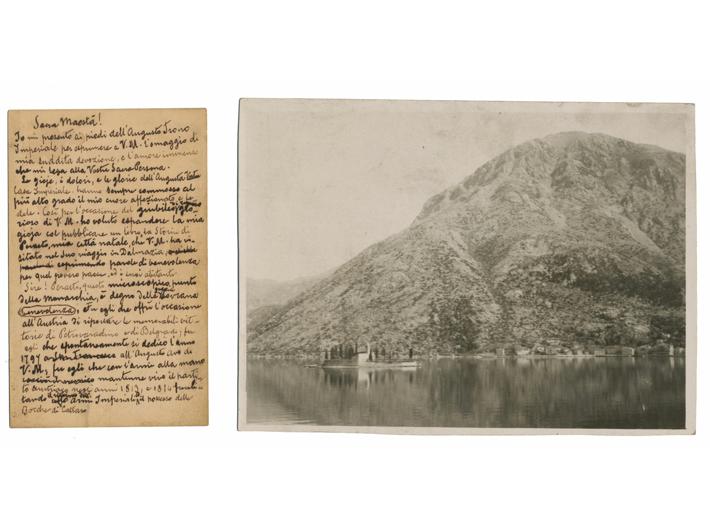 Sacra Maestà!
Io mi presento ai piedi dell'Augusto Trono
Imperiale per esprimere a V.M. l'omaggio di
mia suddita devozione, e l'amore
che mi lega alla Vostra Sacra Persona.
Le gioje, i dolori, e le glorie dell'Augusta
Casa Imperiale hanno sempre commosso al
più alto grado il mio cuore affezionato e
dele. Così per l'occasione del giubileo glo-
rioso di V.M. ho voluto espandere la mia
gioja col pubblicare un libro, la Storia di
Perasto, mia città natale, che V.M. ha vi-
sitato nel Suo viaggio in Dalmazia,
esprimendo parole di benevolenza
per quel povero paese, ed i suoi abitanti.
Sire! Perasto, questo microscopico punto
della Monarchia, è degno della Sovrana
benevolenza; egli che offrì l'occasione
all'Austria di riportare le memorabili vit-
torie di Petrovaradino e di Belgrado; fu
egli che spontaneamente si dedicò l'anno
1797 all'Augusto avo di
V.M.; fu egli che con l'armi alla mano
mantenne vivo il parti-
to austriaco negli anni 1813, e 1814
tando armi Imperiali, il possesso delle
Bocche di Cattaro